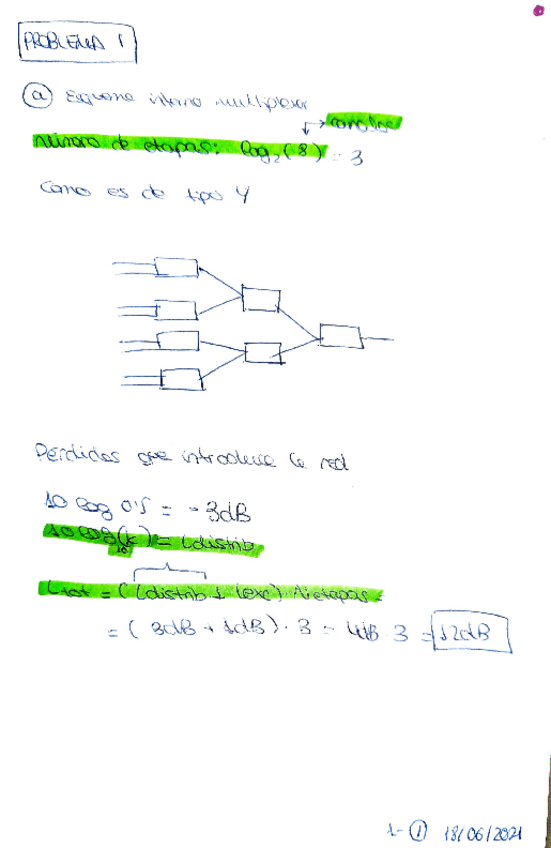 PROBLEMA 1
(a) Esquema interno multiplexor
→ canales
número de etapas: log₂(8) = 3
Como es de tipo Y
Pérdidas que introduce la red
10 log 0'5 = -3dB
10 log₁₀(k) = Ldistrib
Ltot = (Ldistrib + Lexc) · Netapas =
= (3dB + 1dB) · 3 = 4dB · 3 = 12dB
1-① 18/06/2021